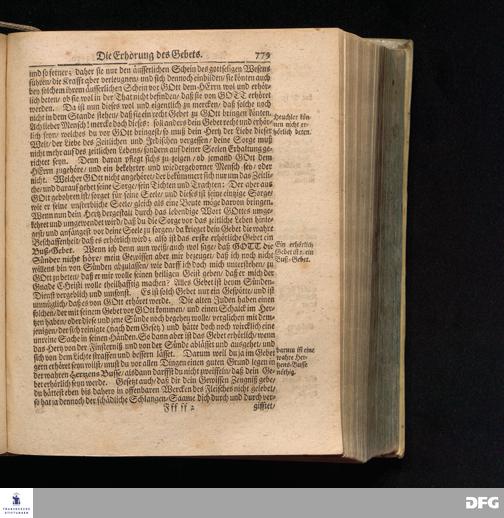 Die Erhörung des Gebets. 779
und so ferner; daher sie nur den äusserlichen Schein des gottseligen Wesens
führen/ die Krafft aber verleugnen/ und sich dennoch einbilden/ sie könten auch
bey solchem ihrem äusserlichen Schein vor GOtt dem HErrn wol und erhör-
lich beten/ ob sie wol in der That nicht befinden/ daß sie von GOTT erhöret
werden. Da ist nun dieses wol und eigentlich zu mercken/ daß solche noch
nicht in dem Stande stehen/ daß sie ein recht Gebet zu GOtt bringen könten.
Ach lieber Mensch! mercke doch dieses: soll anders dein Gebet recht und erhör-
lich seyn/ welches du vor GOtt bringest/ so muß dein Hertz der Liebe dieser
Welt/ der Liebe des Zeitlichen und Irdischen vergessen/ deine Sorge muß
nicht mehr auf des zeitlichen Lebens/ sondern auf deiner Seelen Erhaltung ge-
richtet seyn. Denn daran pflegt sichs zu zeigen/ ob jemand GOtt dem
HErrn zugehöre/ und ein bekehrter und wiedergeborner Mensch sey/ oder
nicht. Welcher GOtt nicht angehöret/ der bekümmert sich nur um das Zeitli-
che/ und darauf gehet seine Sorge/ sein Tichten und Trachten: Der aber aus
GOtt gebohren ist/ sorget für seine Seele/ und dieses ist seine eintzige Sorge/
wie er seine unsterbliche Seele/ gleich als eine Beute möge davon bringen.
Wenn nun dein Hertz dergestalt durch das lebendige Wort GOttes umge-
kehret und umgewendet wird/ daß du die Sorge vor das zeitliche Leben hinte-
setzest/ und anfängest vor deine Seele zu sorgen/ da krieget dein Gebet die wahre
Beschaffenheit/ daß es erhörlich wird; also ist das erste erhörliche Gebet ein
Buß-Gebet. Wenn ich denn nun weiß/ auch wol sage/ daß GOTT die
Sünder nicht höre/ mein Gewissen aber mir bezeuget/ daß ich noch nicht
willens bin von Sünden abzulassen/ wie darff ich doch mich unterstehen/ zu
GOtt zu beten/ daß er mir wolle seinen heiligen Geist geben/ daß er mich der
Gnade Christi wolle theilhafftig machen? Alles Gebet ist beym Sünden-
Dienst vergeblich und umsonst. Es ist solch Gebet nur ein Gespötte/ und ist
unmüglich/ daß es von GOtt erhöret werde. Die alten Juden haben einen
solchen/ der mit seinem Gebet vor GOtt kommen/ und einen Schalck im Her-
tzen haben/ oder diese und jene Sünde noch begehen wolle/ verglichen mit dem-
jenigen/ der sich reinigte (nach dem Gesetz) und hätte doch noch würcklich eine
unreine Sache in seinen Händen. So dann aber ist das Gebet erhörlich/ wenn
das Hertz von der Finsterniß und von der Sünde ablässet und ausgehet/ und
sich vom dem Lichte straffen und bessern lässet. Darum weil du ja im Gebet
gern erhöret seyn wolst/ must du vor allen Dingen einen guten Grund legen in
der wahren Hertzens Busse/ alsdann darffst du nicht zweiffeln/ daß dein Ge-
bet erhörlich seyn werde. Gesetzt auch/ daß dir dein Gewissen Zeugniß gebe/
du hättest eben bis dahero in offenbaren Wercken des Fleisches nicht gelebet/
so hat ja dennoch der schädliche Schlangen-Saame dich durch und durch ver-
Fff ff 2 gifftet/
Heuchler kön-
nen nicht er-
hörlich beten.
Ein erhörlich
Gebet ist ein
Buß-Gebet.
Darum ist eine
wahre Her-
tzens-Busse
nöthig.
FRANCKESCHE
STIFTUNGEN
DFG